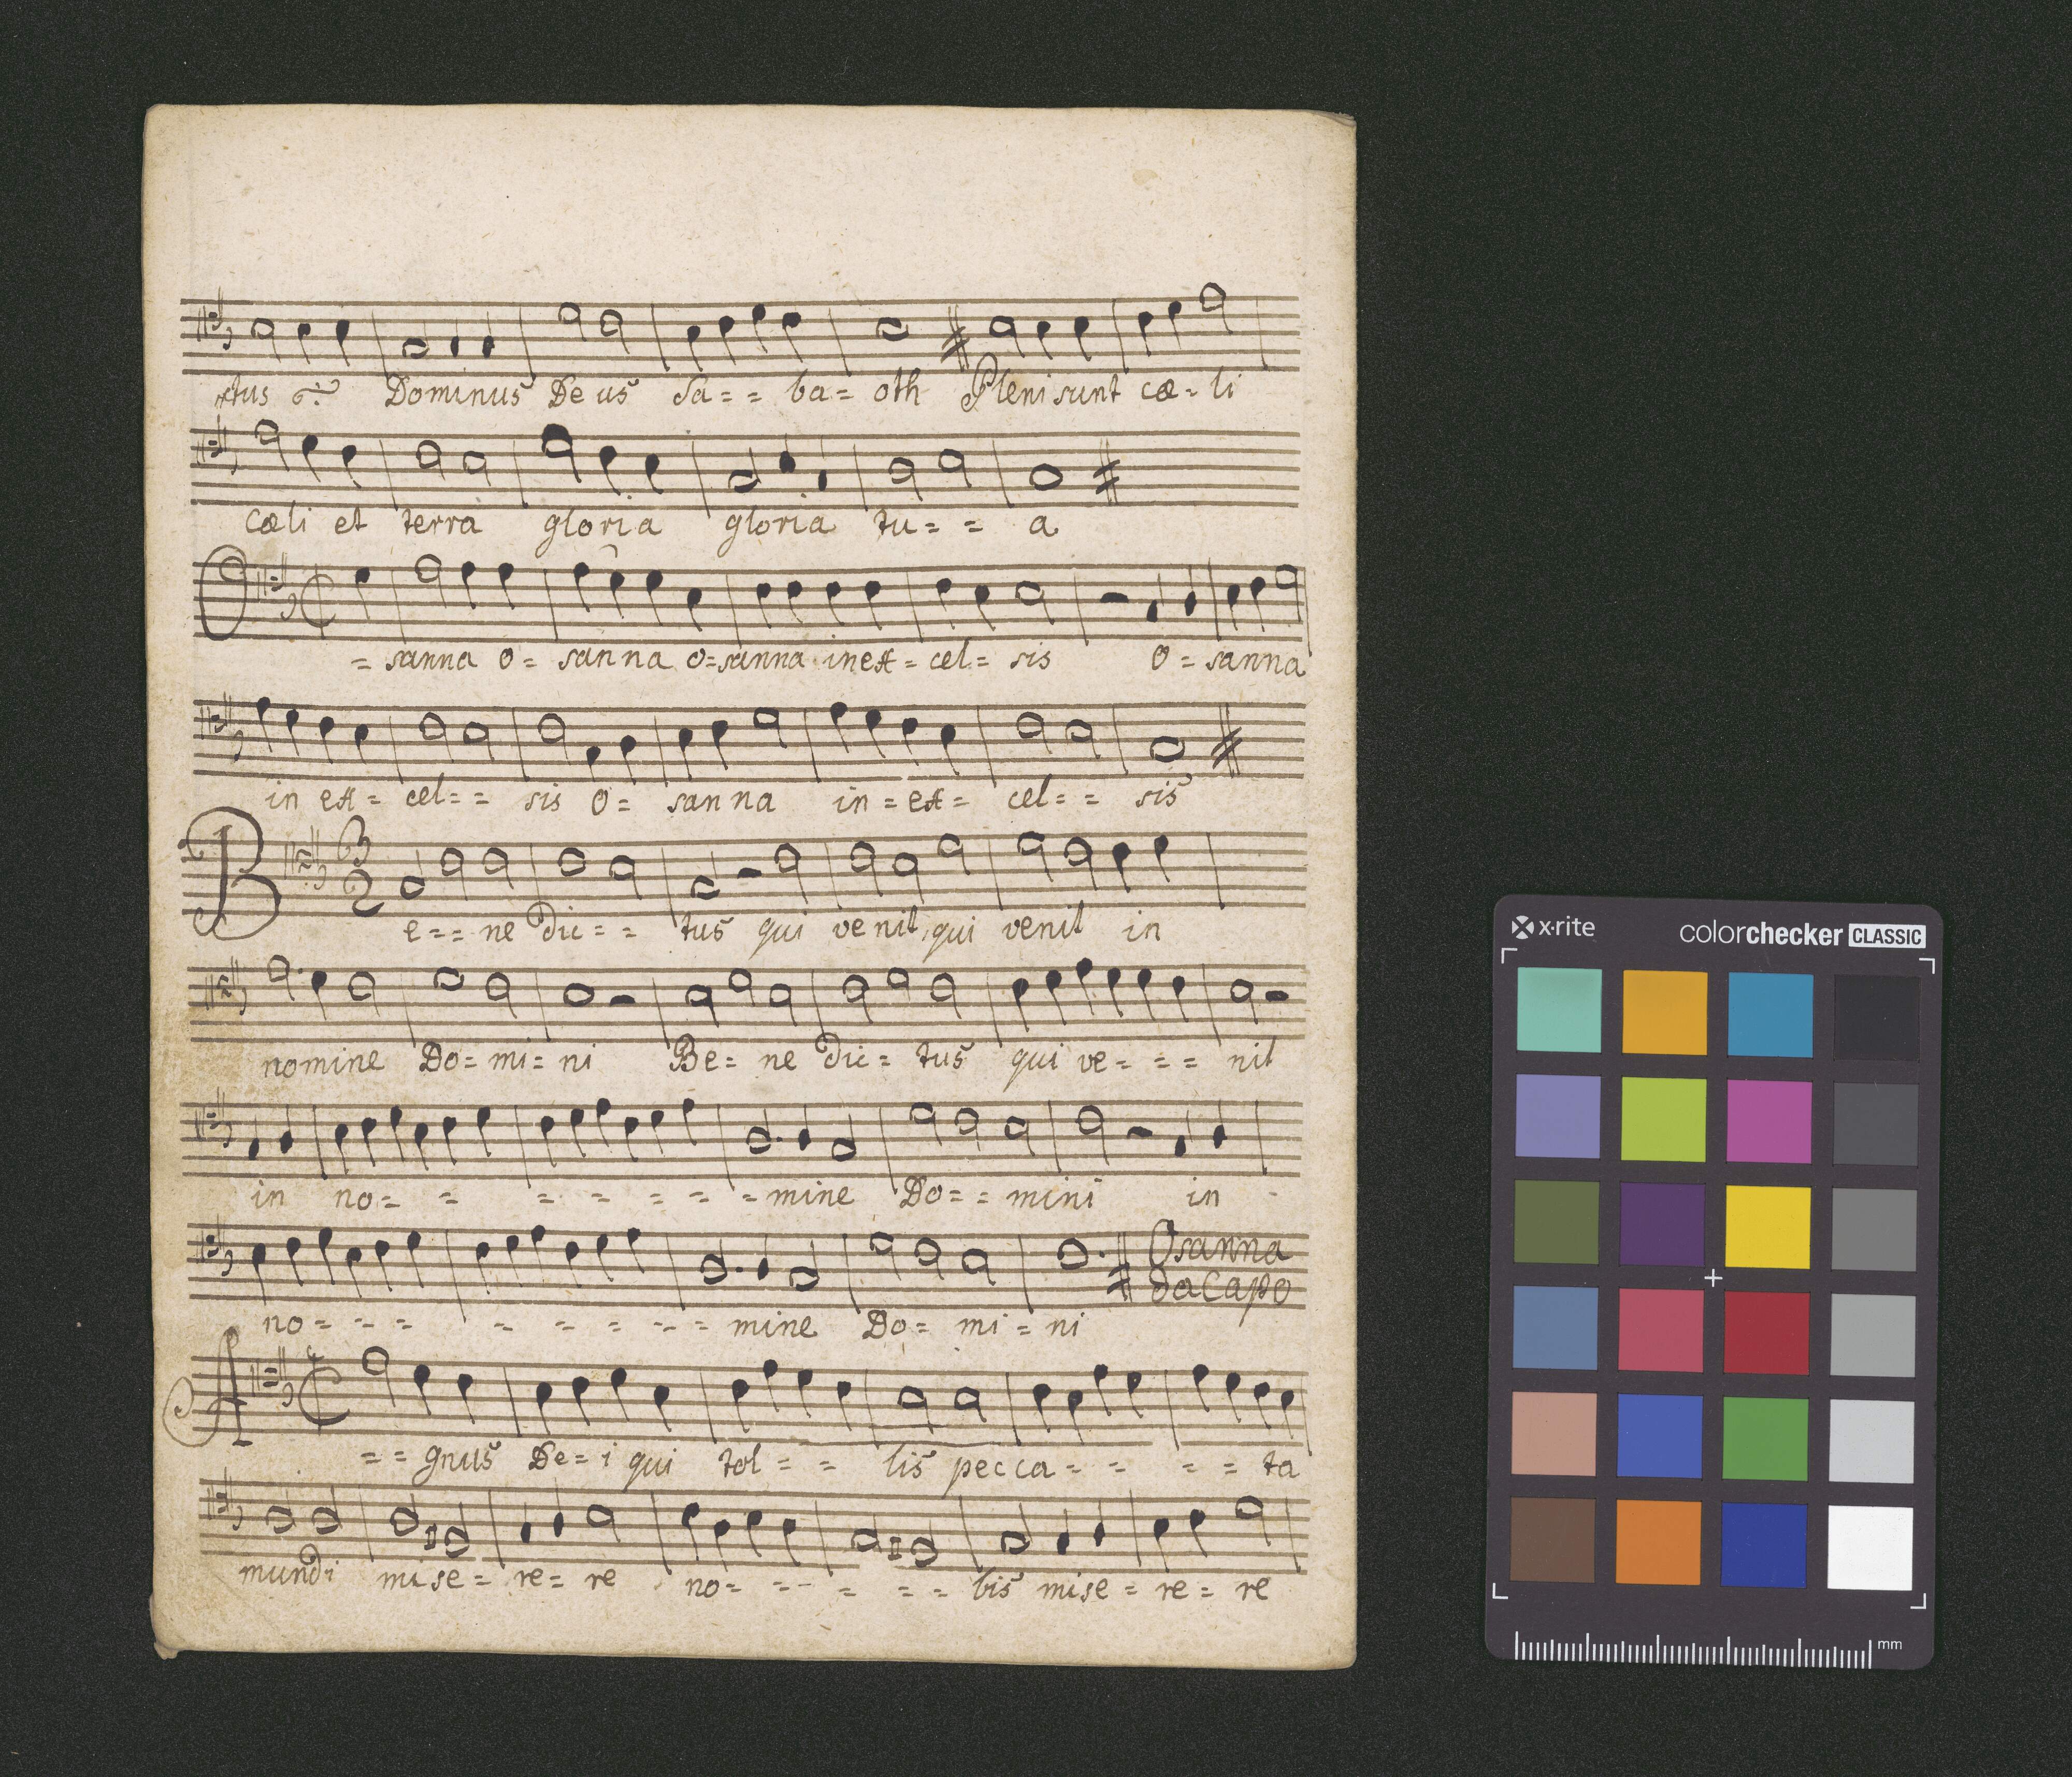 ctus :
Dominus De us Sa = = ba = oth Pleni sunt cæ = li
cæli et terra gloria gloria tu = = a
O = sanna o = sanna o = sanna in ex = cel = sis O = sanna
in ex = cel = = sis O = sanna in = ex = cel = = sis
3
2
Be = = ne dic = = tus qui venit, qui venit in
nomine Do = mi = ni Be = ne dic = tus qui ve = = = nit
in no = = = = = = = mine Do = = mini in
no = = = = = = = = mine Do = mi = ni
Osanna
da Capo
A = = gnus De = i qui tol = = lis pecca = = = = ta
mundi mise = re = re no = = = = = = bis mise = re = re
x·rite
colorchecker CLASSIC
mm